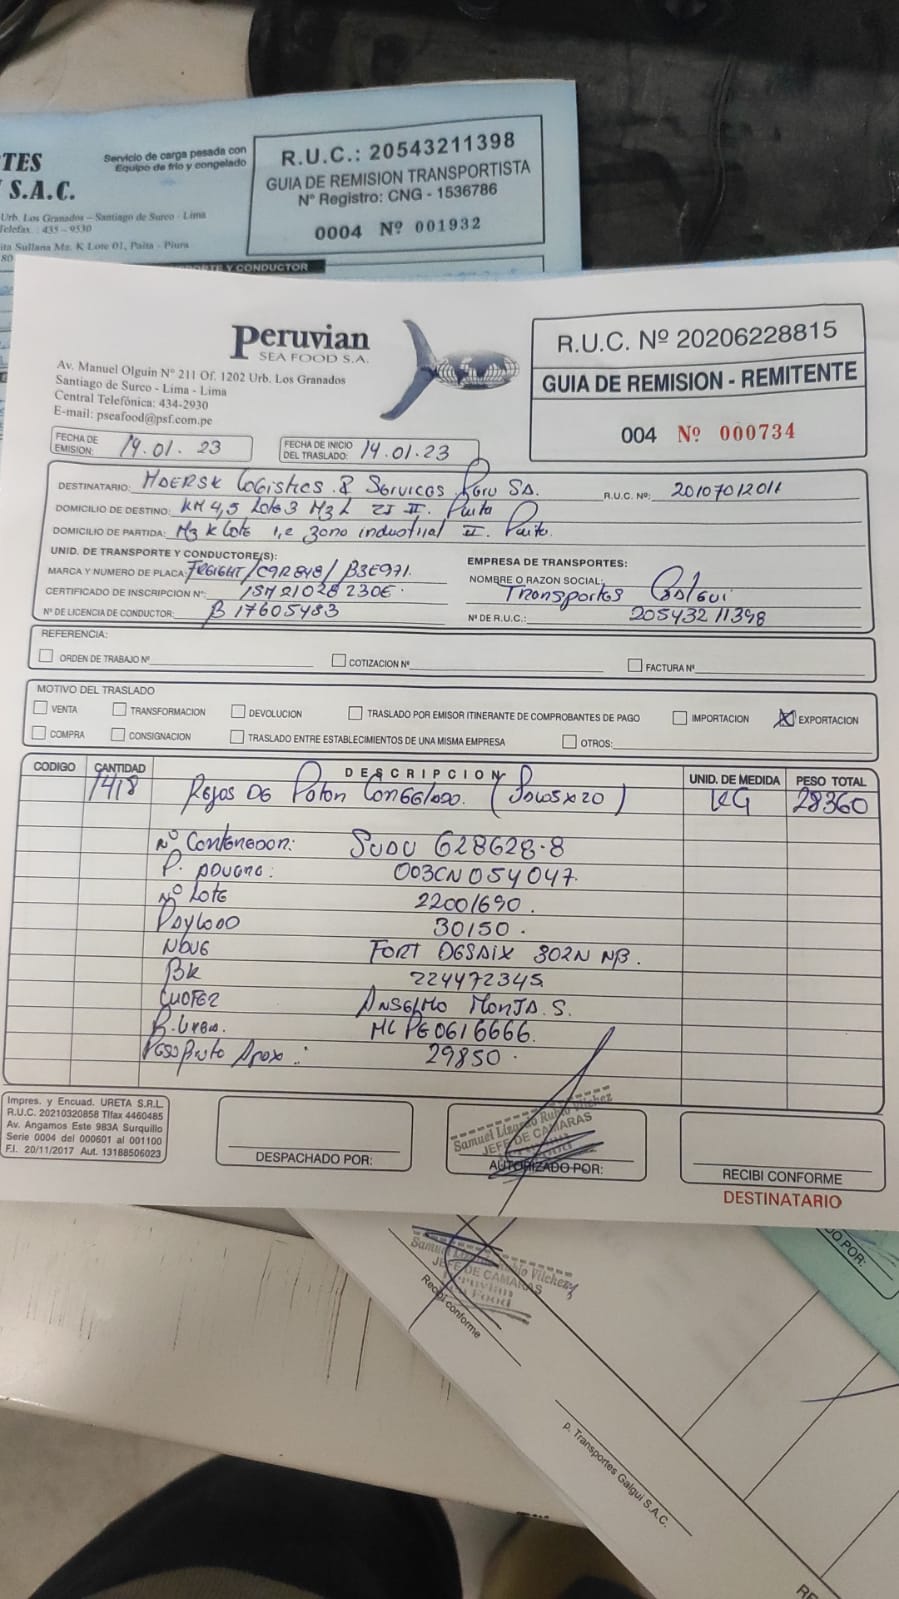 TES
S.A.C.
Servicio de carga pesada con
Equipo de frío y congelado
Urb. Los Granados - Santiago de Surco - Lima
Telefax : 435 - 9530
ita Sullana Mz. K Lote 01, Paita - Piura
R.U.C.: 20543211398
GUIA DE REMISION TRANSPORTISTA
N° Registro: CNG - 1536786
0004 Nº 001932
Y CONDUCTOR
Peruvian
SEA FOOD S.A.
Av. Manuel Olguin N° 211 Of. 1202 Urb. Los Granados
Santiago de Surco - Lima - Lima
Central Telefónica: 434-2930
E-mail: pseafood@psf.com.pe
R.U.C. Nº 20206228815
GUIA DE REMISION - REMITENTE
004 Nº 000734
FECHA DE EMISION: 14.01.23
FECHA DE INICIO DEL TRASLADO: 14.01.23
DESTINATARIO: MAERSK Logistics & Services Peru SA.
R.U.C. Nº: 20107012011
DOMICILIO DE DESTINO: KM 4,5 Lote 3 Mz L ZI II. Paita
DOMICILIO DE PARTIDA: Mz K Lote 1,2 zona industrial II. Paita.
UNID. DE TRANSPORTE Y CONDUCTORE(S):
EMPRESA DE TRANSPORTES:
MARCA Y NUMERO DE PLACA: FREIGHT/C9R848/B3E971.
NOMBRE O RAZON SOCIAL: Transportes Galgui
CERTIFICADO DE INSCRIPCION N°: 15M21028230E.
Nº DE LICENCIA DE CONDUCTOR: B 17605483
Nº DE R.U.C.: 20543211398
REFERENCIA:
ORDEN DE TRABAJO Nº
COTIZACION Nº
FACTURA Nº
MOTIVO DEL TRASLADO
VENTA
TRANSFORMACION
DEVOLUCION
TRASLADO POR EMISOR ITINERANTE DE COMPROBANTES DE PAGO
IMPORTACION
EXPORTACION
COMPRA
CONSIGNACION
TRASLADO ENTRE ESTABLECIMIENTOS DE UNA MISMA EMPRESA
OTROS:
CODIGO CANTIDAD DESCRIPCION UNID. DE MEDIDA PESO TOTAL
1418 Rejos DE Poton Congelado. (Sacos x 20) KG 28360
Nº Contenedor: SUDU 628628-8
P. ADUANA: 003CN054047.
Nº Lote 22001690.
Payload 30150.
NAVE FORT DESAIX 302N NB.
BK 224472345.
CHOFER ANSELMO MONJA. S.
MLPE0616666.
Peso Bruto Aprox.: 29850.
Impres. y Encuad. URETA S.R.L.
R.U.C. 20210320858 Tlfax 4460485
Av. Angamos Este 983A Surquillo
Serie 0004 del 000601 al 001100
F.I. 20/11/2017 Aut. 13188506023
DESPACHADO POR:
Samuel Lizardo Rubio Vilchez
JEFE DE CAMARAS
AUTORIZADO POR:
RECIBI CONFORME
DESTINATARIO
Samuel Lizardo Rubio Vilchez
JEFE DE CAMARAS
Peruvian
Sea Food
Recibi conforme
p. Transportes Galgui S.A.C.
DO POR: